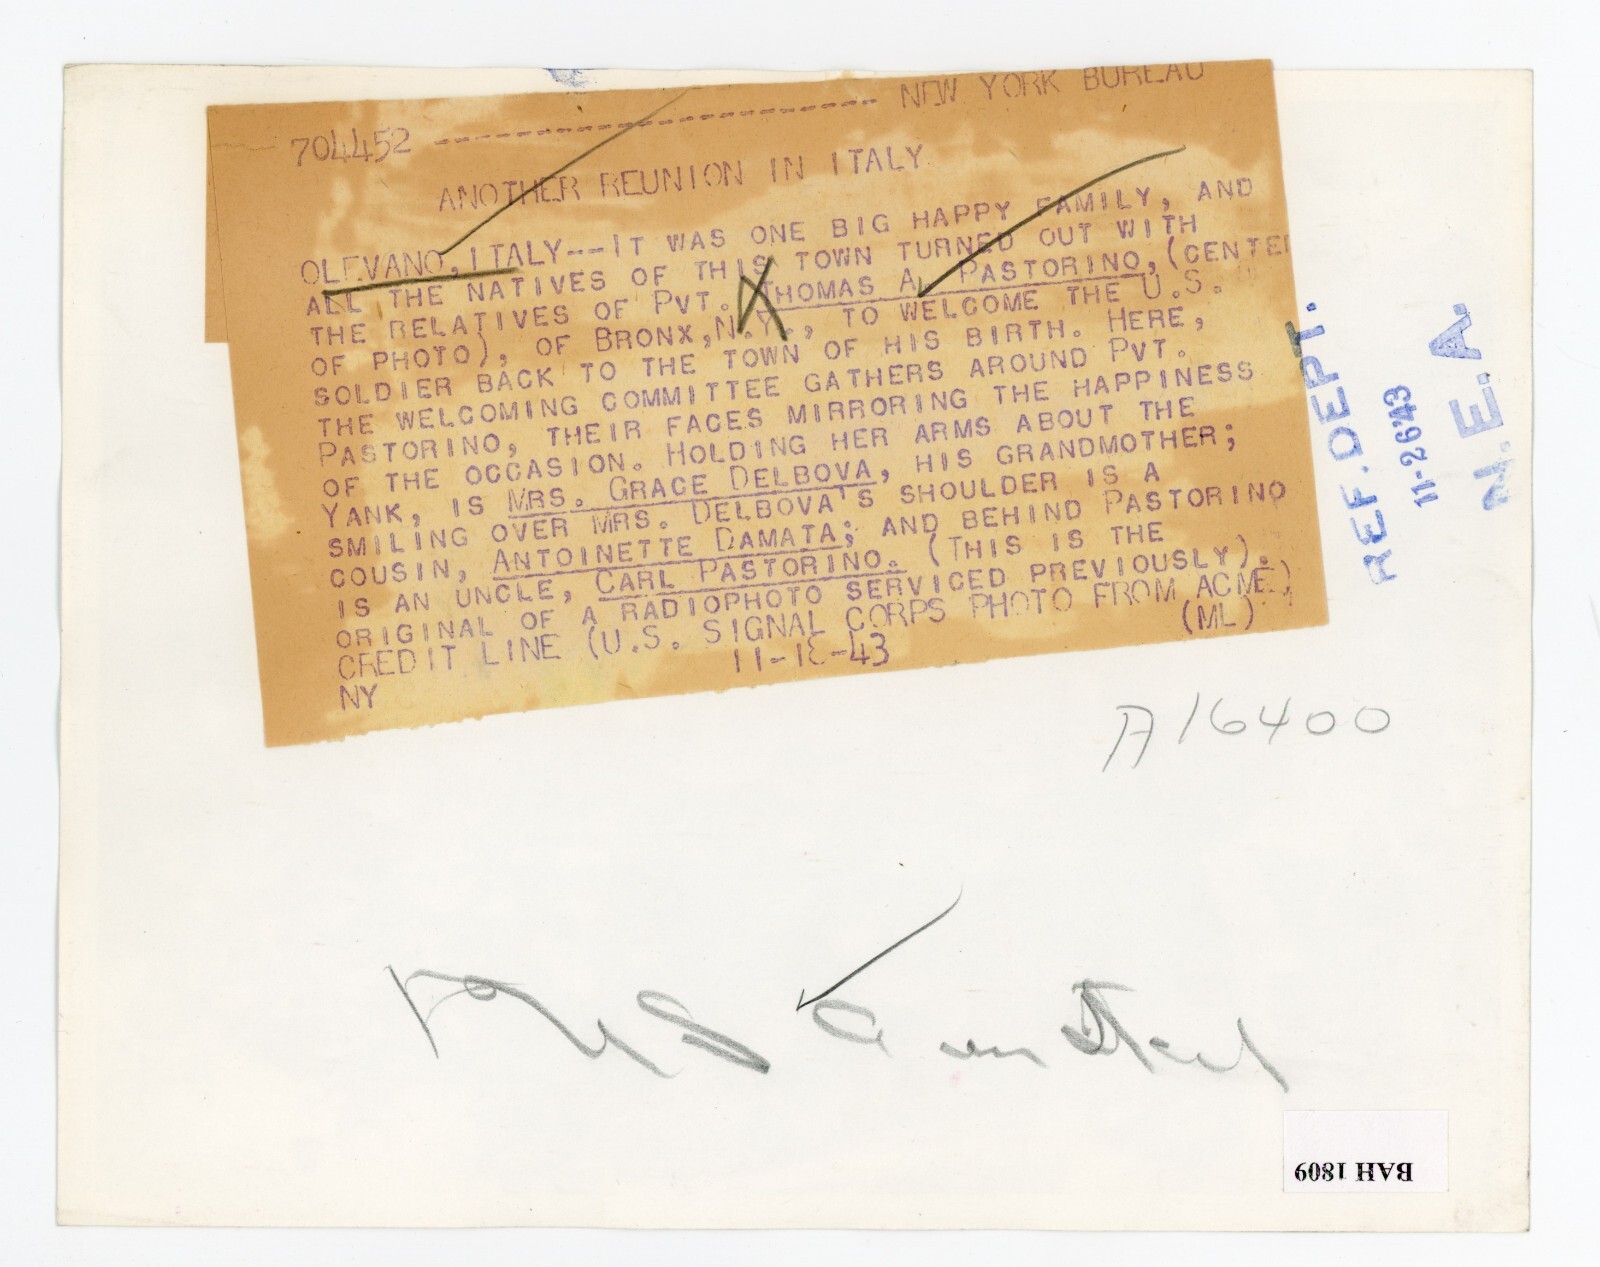 704452 -------------------------------- NEW YORK BUREAU
ANOTHER REUNION IN ITALY
OLEVANO, ITALY--IT WAS ONE BIG HAPPY FAMILY, AND
ALL THE NATIVES OF THIS TOWN TURNED OUT WITH
THE RELATIVES OF PVT. THOMAS A. PASTORINO, (CENTE
OF PHOTO), OF BRONX, N.Y., TO WELCOME THE U.S.
SOLDIER BACK TO THE TOWN OF HIS BIRTH. HERE,
THE WELCOMING COMMITTEE GATHERS AROUND PVT.
PASTORINO, THEIR FACES MIRRORING THE HAPPINESS
OF THE OCCASION. HOLDING HER ARMS ABOUT THE
YANK, IS MRS. GRACE DELBOVA, HIS GRANDMOTHER;
SMILING OVER MRS. DELBOVA'S SHOULDER IS A
COUSIN, ANTOINETTE DAMATA; AND BEHIND PASTORINO
IS AN UNCLE, CARL PASTORINO. (THIS IS THE
ORIGINAL OF A RADIOPHOTO SERVICED PREVIOUSLY).
CREDIT LINE (U.S. SIGNAL CORPS PHOTO FROM ACME)
NY 11-18-43 (ML)
REF. DEPT.
11-26'43
N.E.A.
A16400
BAH 1809